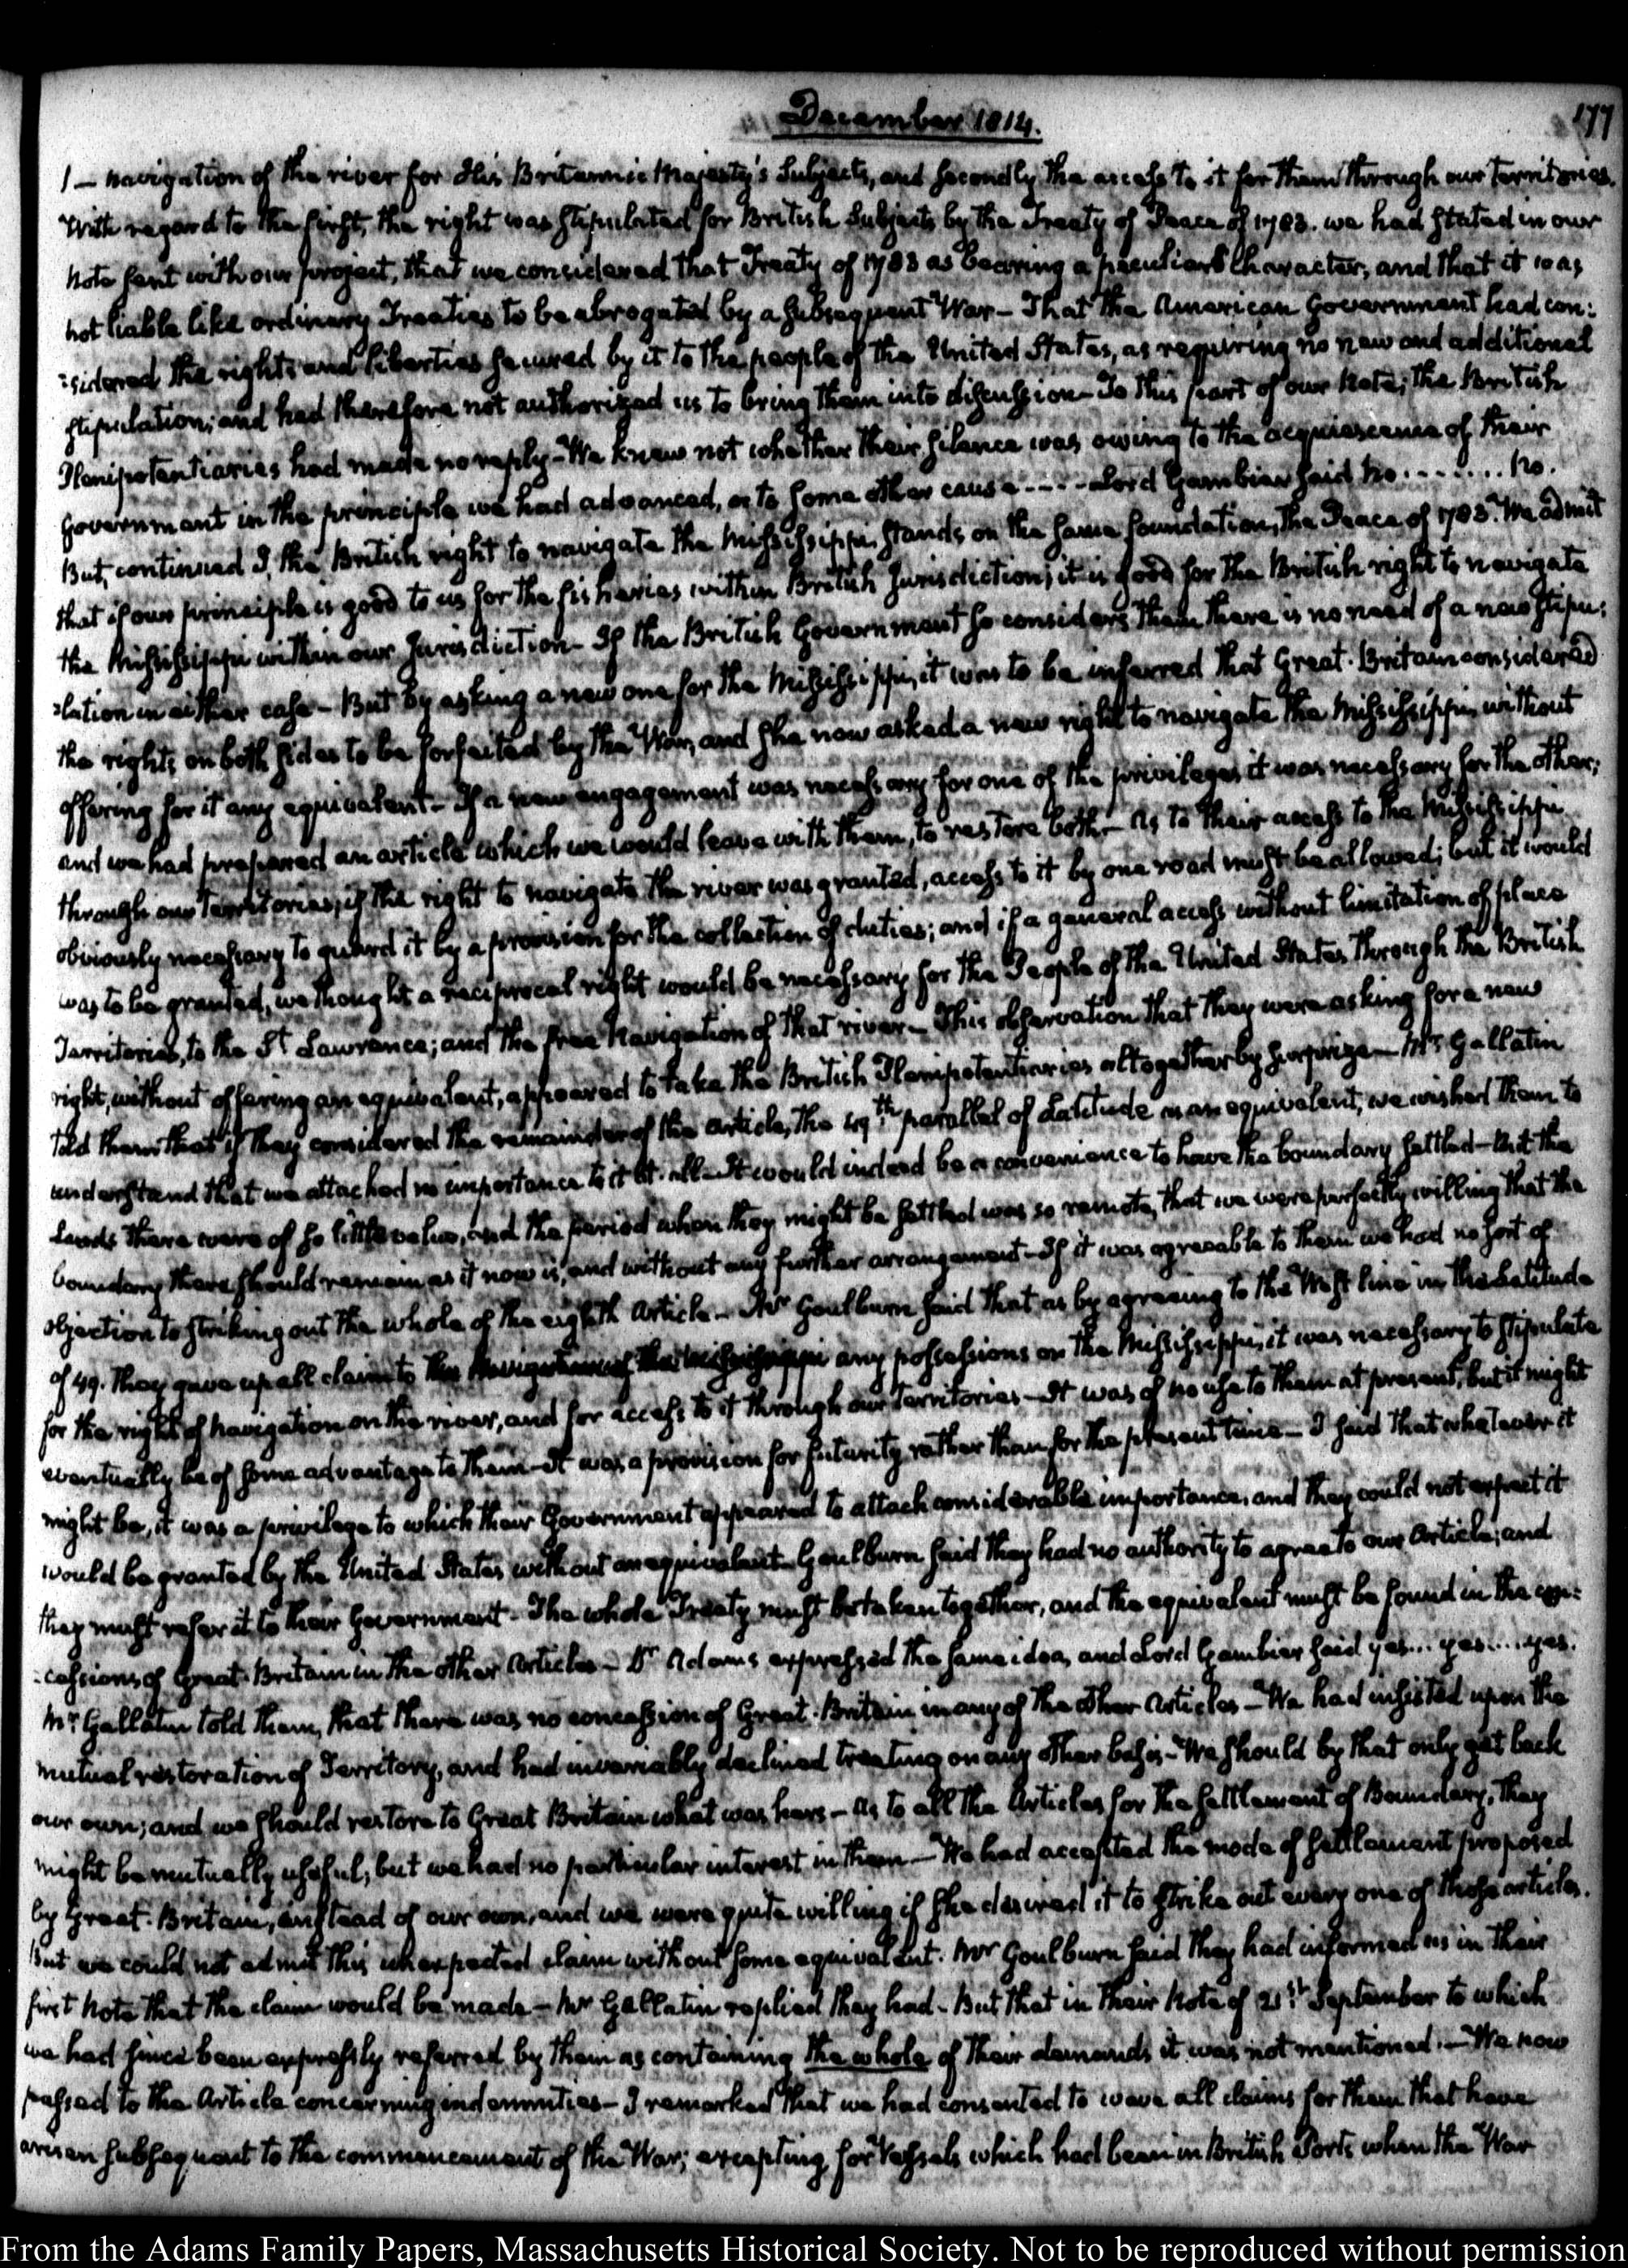 December 1814.
177
1 — navigation of the river for His Britannic Majesty's Subjects, and secondly the access to it for them through our territories.
With regard to the first, the right was stipulated for British Subjects by the Treaty of Peace of 1783. we had stated in our
Note sent with our project, that we considered that Treaty of 1783 as bearing a peculiar Character, and that it was
not liable like ordinary Treaties to be abrogated by a subsequent War — That the American Government had con:
:sidered the rights and liberties secured by it to the people of the United States, as requiring no new and additional
stipulation; and had therefore not authorized us to bring them into discussion — To this part of our Note, the British
Plenipotentiaries had made no reply — We knew not whether their silence was owing to the acquiescence of their
Government in the principle we had advanced, or to some other cause - - - - Lord Gambier said no . - - - - . . . no.
But, continued I, the British right to navigate the Mississippi, stands on the same foundation, the Peace of 1783. We admit
that if our principle is good to us for the fisheries within British Jurisdiction, it is good for the British right to navigate
the Mississippi within our Jurisdiction — If the British Government so considers them there is no need of a new stipu:
:lation in either case — But by asking a new one for the Mississippi, it was to be inferred that Great-Britain considered
the rights on both sides to be forfeited by the War, and she now asked a new right to navigate the Mississippi, without
offering for it any equivalent — If a new engagement was necessary for one of the privileges it was necessary for the other;
and we had prepared an article which we would leave with them, to restore both — As to their access to the Mississippi
through our Territories, if the right to navigate the river was granted, access to it by one road must be allowed; but it would
obviously necessary to guard it by a provision for the collection of duties; and if a general access without limitation of place
was to be granted, we thought a reciprocal right would be necessary for the People of the United States through the British
Territories, to the St Lawrence; and the free Navigation of that river — This observation that they were asking for a new
right, without offering an equivalent, appeared to take the British Plenipotentiaries altogether by surprize — Mr Gallatin
told them that if they considered the remainder of the article, the 49th parallel of Latitude as an equivalent, we wished them to
understand that we attached no importance to it at all — It would indeed be a convenience to have the boundary settled — But the
Lands there were of so little value, and the period when they might be settled was so remote, that we were perfectly willing that the
boundary there should remain as it now is, and without any further arrangement — If it was agreeable to them we had no sort of
objection to striking out the whole of the eighth Article — Mr Goulburn said that as by agreeing to the West line in the Latitude
of 49. they gave up all claim to the Navigation of the Mississippi any possessions on the Mississippi, it was necessary to stipulate
for the right of navigation on the river, and for access to it through our Territories — It was of no use to them at present, but it might
eventually be of some advantage to them — It was a provision for futurity rather than for the present time — I said that whatever it
might be, it was a privilege to which their Government appeared to attach considerable importance, and they could not expect it
would be granted by the United States without an equivalent. Goulburn said they had no authority to agree to our Article; and
they must refer it to their Government — The whole Treaty must be taken together, and the equivalent must be found in the con:
:cessions of Great-Britain in the other Articles — Dr Adams expressed the same idea, and Lord Gambier said yes... yes.... yes.
Mr Gallatin told them, that there was no concession of Great-Britain in any of the other Articles — We had insisted upon the
mutual restoration of Territory, and had invariably declined treating on any other basis — We should by that only get back
our own; and we should restore to Great Britain what was hers — As to all the Articles for the settlement of Boundary, they
might be mutually useful, but we had no particular interest in them — We had accepted the mode of settlement proposed
by Great-Britain, instead of our own, and we were quite willing if she desired it to strike out every one of those articles.
But we could not admit this unexpected claim without some equivalent. Mr Goulburn said they had informed us in their
first Note that the claim would be made — Mr Gallatin replied they had — But that in their Note of 21st September to which
we had since been expressly referred by them as containing the whole of their demands it was not mentioned. — We now
passed to the Article concerning indemnities — I remarked that we had consented to wave all claims for them that have
arisen subsequent to the commencement of the War; excepting for Vessels which had been in British Ports when the War
From the Adams Family Papers, Massachusetts Historical Society. Not to be reproduced without permission